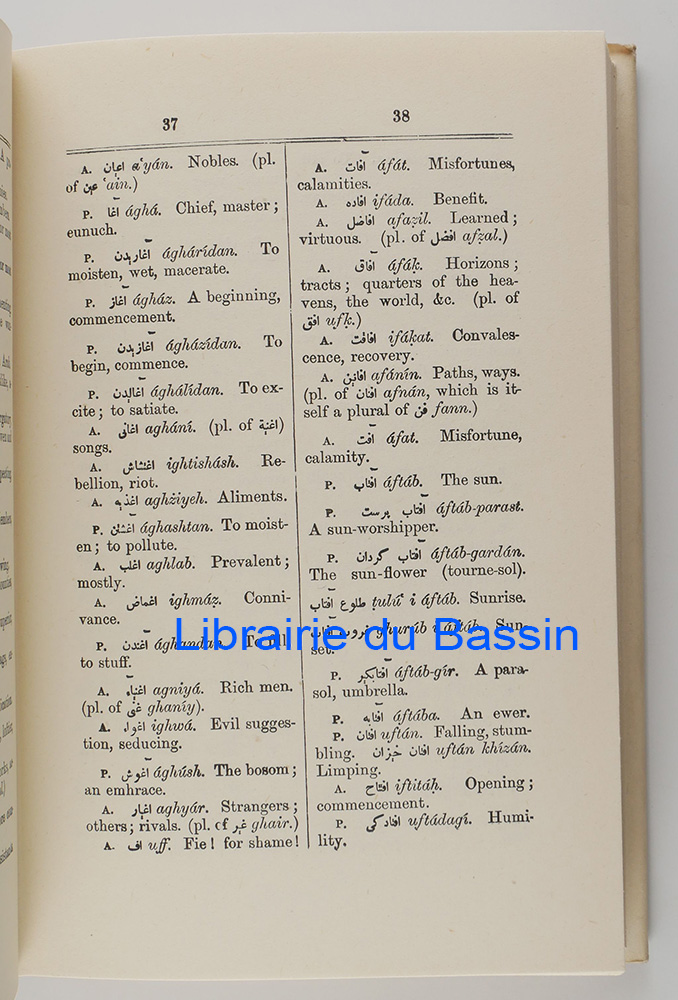 37
A. اعیان a'yán. Nobles. (pl.
of عین 'ain.)
P. آغا ághá. Chief, master;
eunuch.
P. آغاریدن ághárídan. To
moisten, wet, macerate.
P. آغاز ágház. A beginning,
commencement.
P. آغازیدن ágházídan. To
begin, commence.
P. آغالیدن ághálídan. To ex-
cite; to satiate.
A. اغانی aghání. (pl. of اغنیة)
songs.
A. اغتشاش ightishásh. Re-
bellion, riot.
A. اغذیه aghżiyeh. Aliments.
P. آغشتن ághashtan. To moist-
en; to pollute.
A. اغلب aghlab. Prevalent;
mostly.
A. اغماض ighmáz. Conni-
vance.
P. آغندن ághandan. To fill,
to stuff.
A. اغنیاء agniyá. Rich men.
(pl. of غنی ghaníy).
A. اغواء ighwá. Evil sugges-
tion, seducing.
P. آغوش ághúsh. The bosom;
an embrace.
A. اغیار aghyár. Strangers;
others; rivals. (pl. of غیر ghair.)
A. اف uff. Fie! for shame!
38
A. آفات áfát. Misfortunes,
calamities.
A. افاده ifáda. Benefit.
A. افاضل afaẓil. Learned;
virtuous. (pl. of افضل afẓal.)
A. آفاق áfáḳ. Horizons;
tracts; quarters of the hea-
vens, the world, &c. (pl. of
افق ufḳ.)
A. افاقت ifáḳat. Convales-
cence, recovery.
A. افانین afánín. Paths, ways.
(pl. of افنان afnán, which is it-
self a plural of فن fann.)
A. آفت áfat. Misfortune,
calamity.
P. آفتاب áftáb. The sun.
P. آفتاب پرست áftáb-parast.
A sun-worshipper.
P. آفتاب گردان áftáb-gardán.
The sun-flower (tourne-sol).
طلوع آفتاب ṭulú' i áftáb. Sunrise.
غروب آفتاب ghurúb i áftáb. Sun-
set.
P. آفتابگیر áftáb-gír. A para-
sol, umbrella.
P. آفتابه áftába. An ewer.
P. افتان uftán. Falling, stum-
bling. افتان خیزان uftán khízán.
Limping.
A. افتتاح iftitáḥ. Opening;
commencement.
P. افتادگی uftádagí. Humi-
lity.
Librairie du Bassin